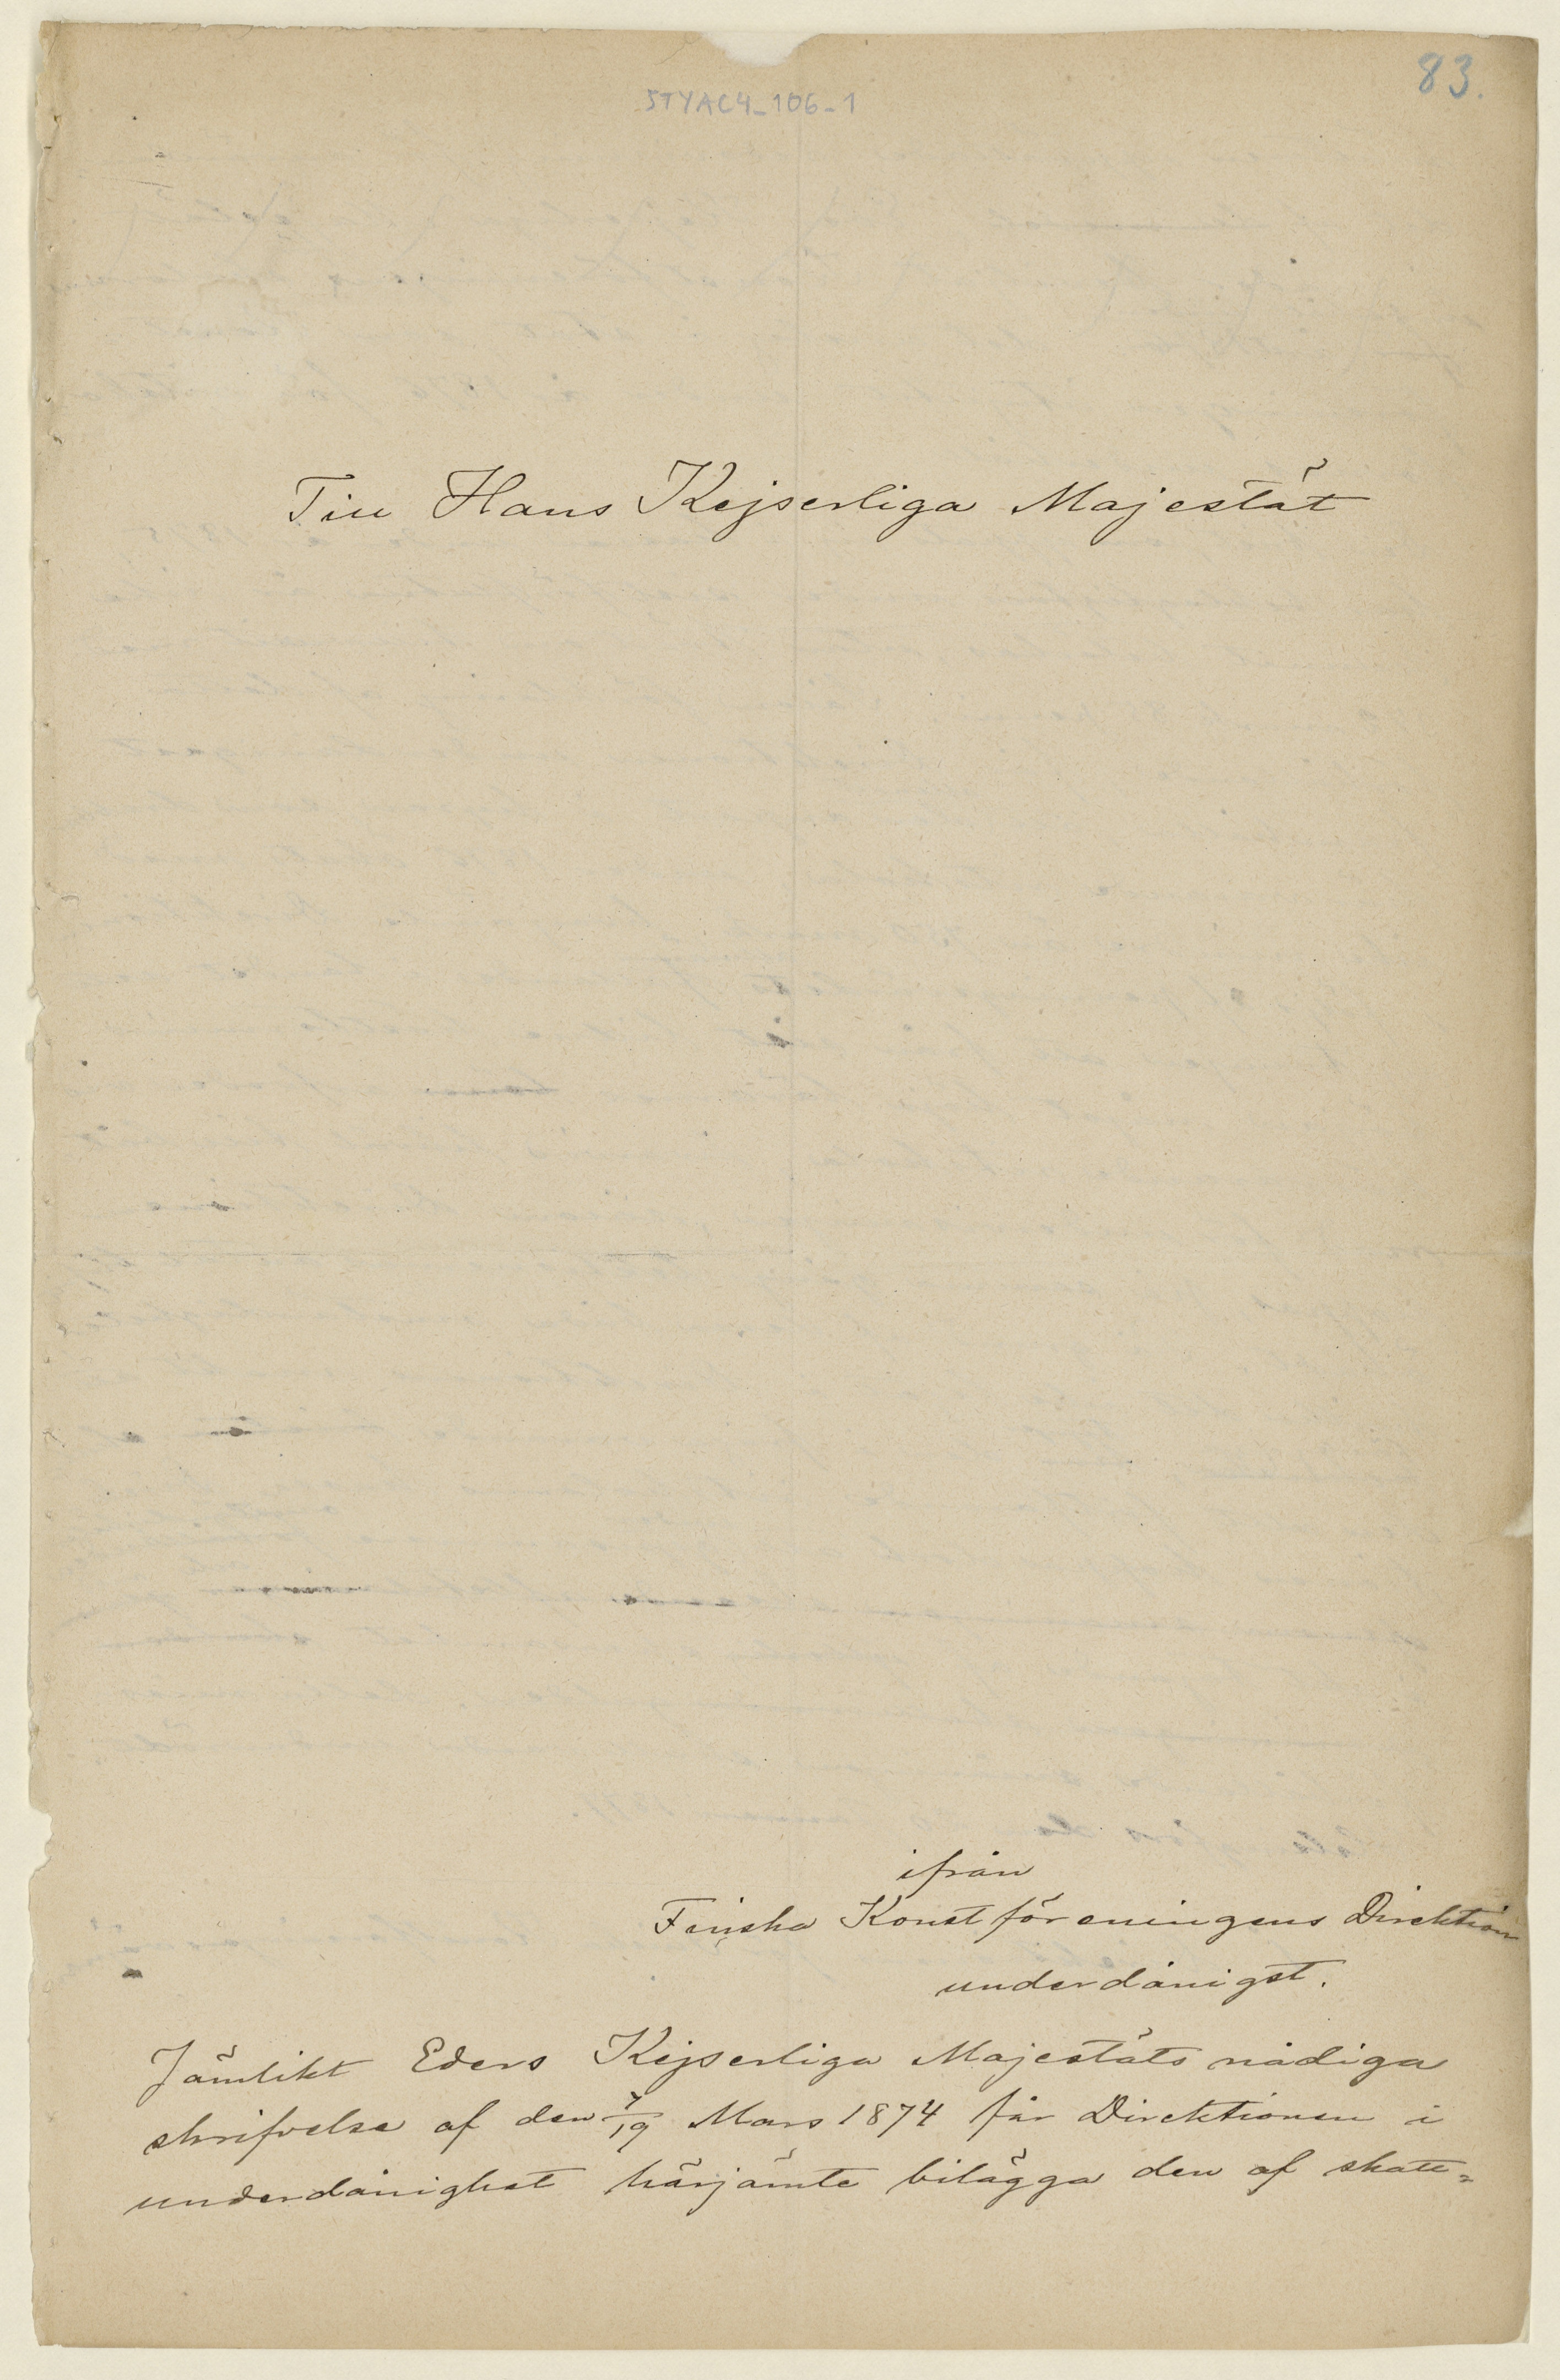 83.
STYAC4_106-1
Till Hans Kejserliga Majestät
ifrån
Finska Konstföreningens Direktion
underdånigst.
Jämlikt Eders Kejserliga Majestäts nådiga
skrifvelse af den 7/19 Mars 1874 får Direktionen i
underdånighet härjämte bilägga den af skatt=